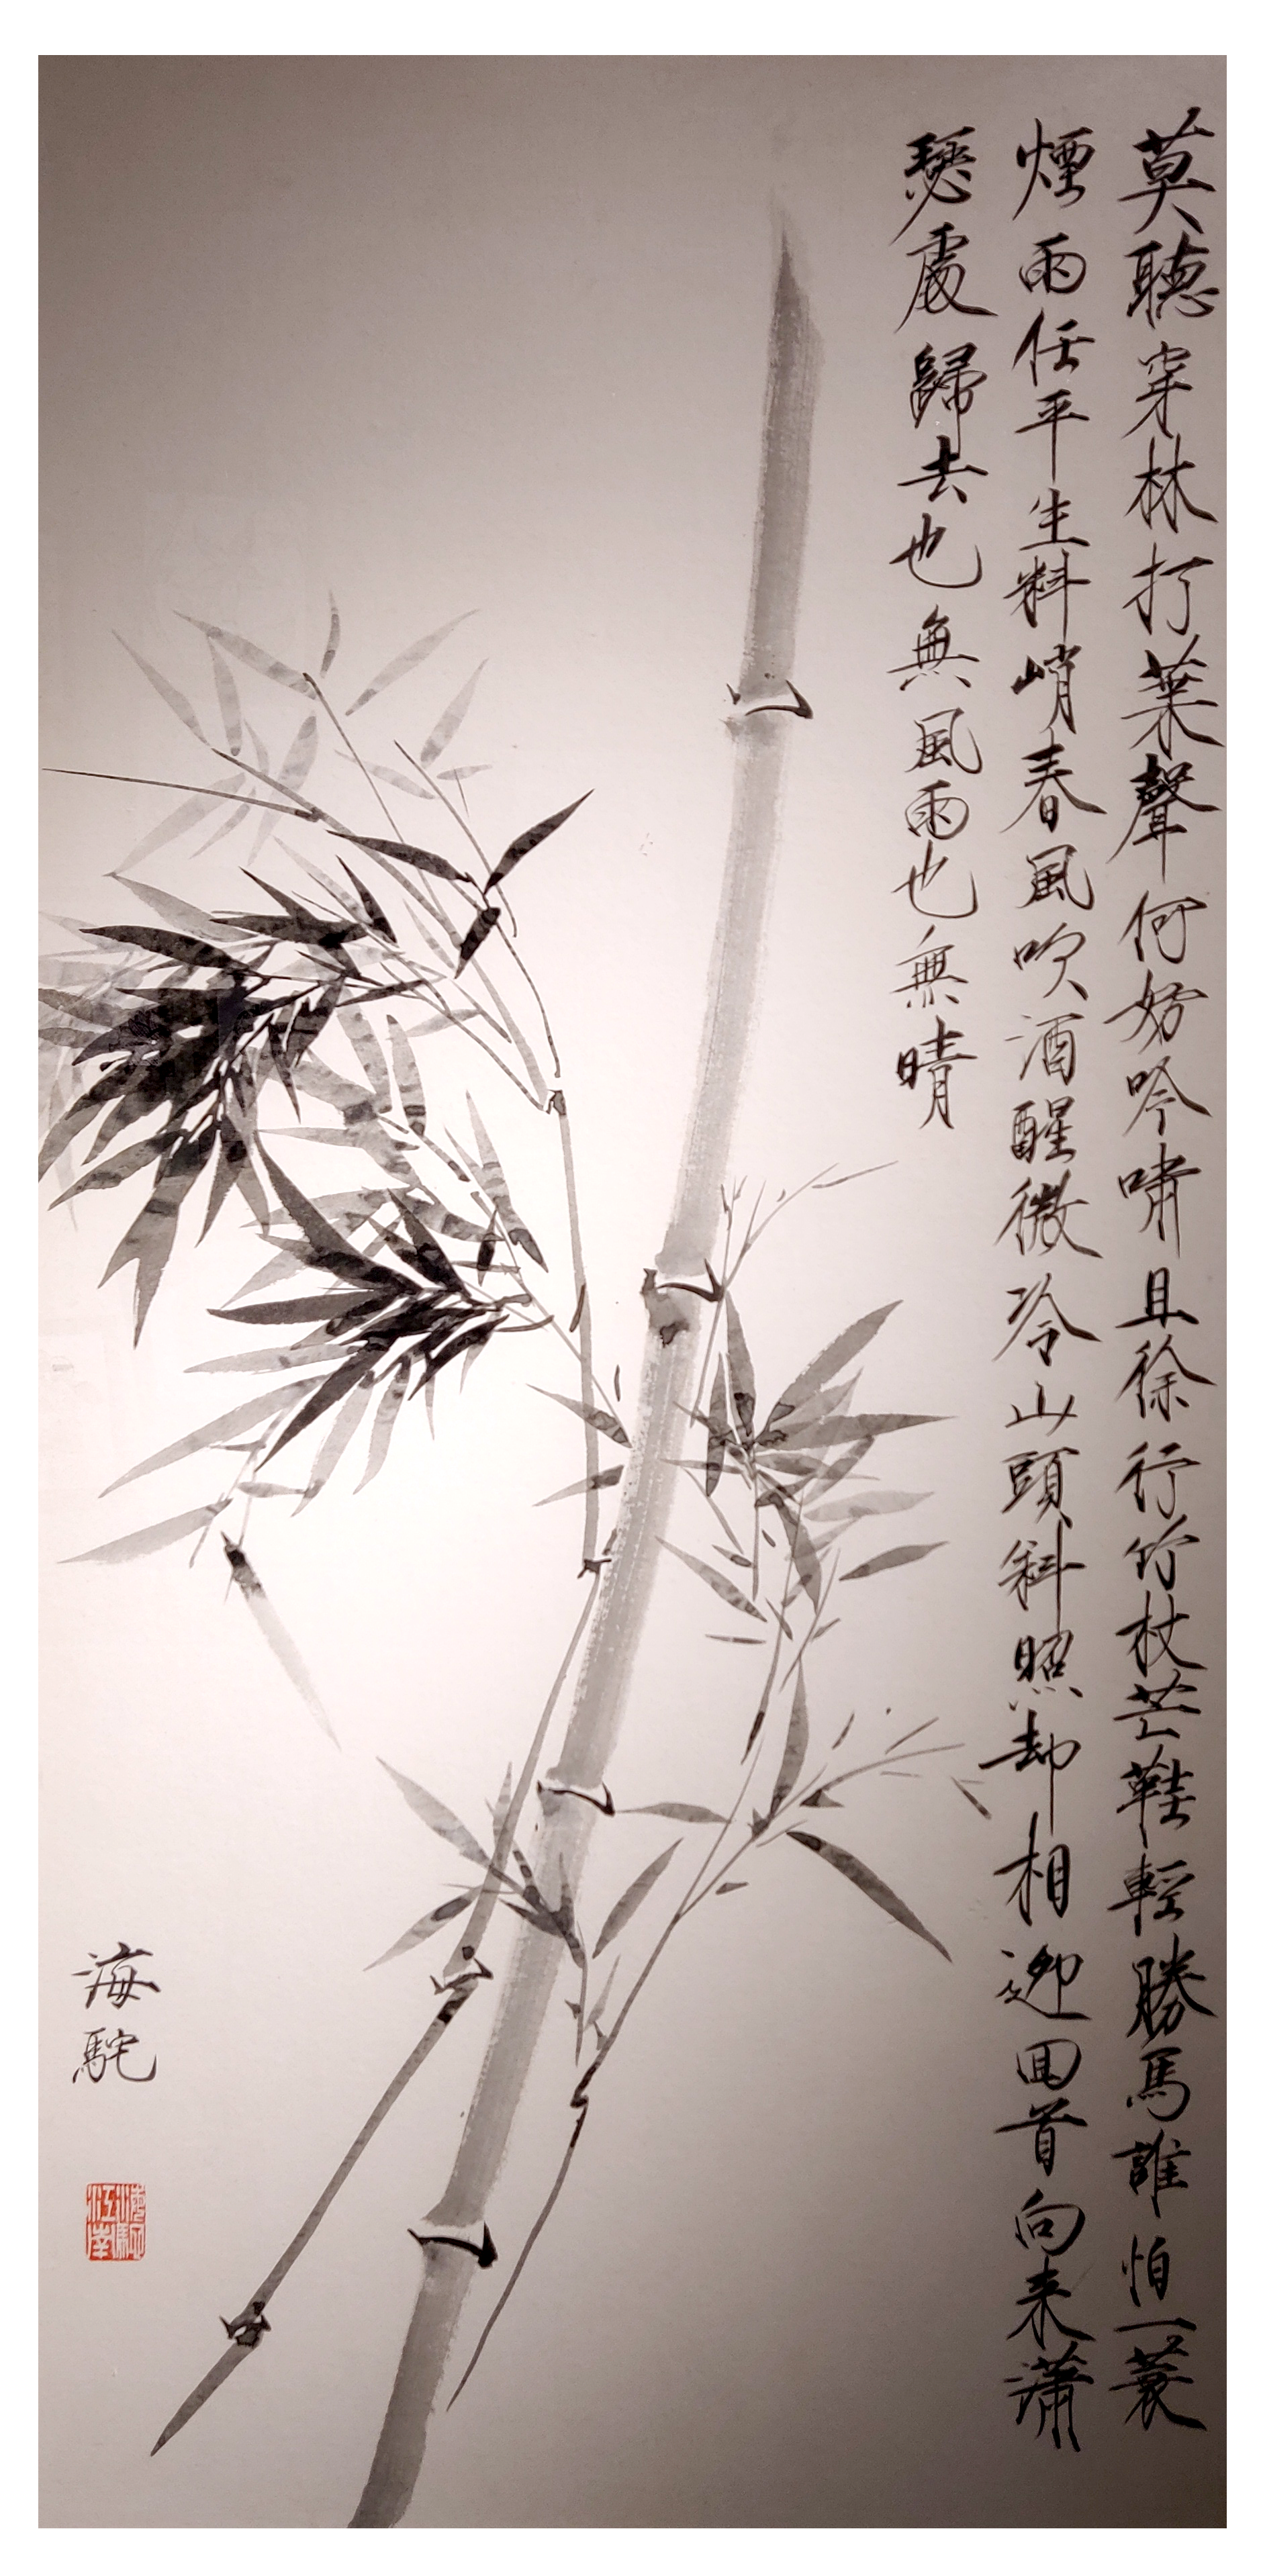 莫聽穿林打葉聲何妨吟嘯且徐行竹杖芒鞋輕勝馬誰怕一蓑
煙雨任平生料峭春風吹酒醒微冷山頭斜照却相迎回首向来瀟
瑟處歸去也無風雨也無晴
海駝